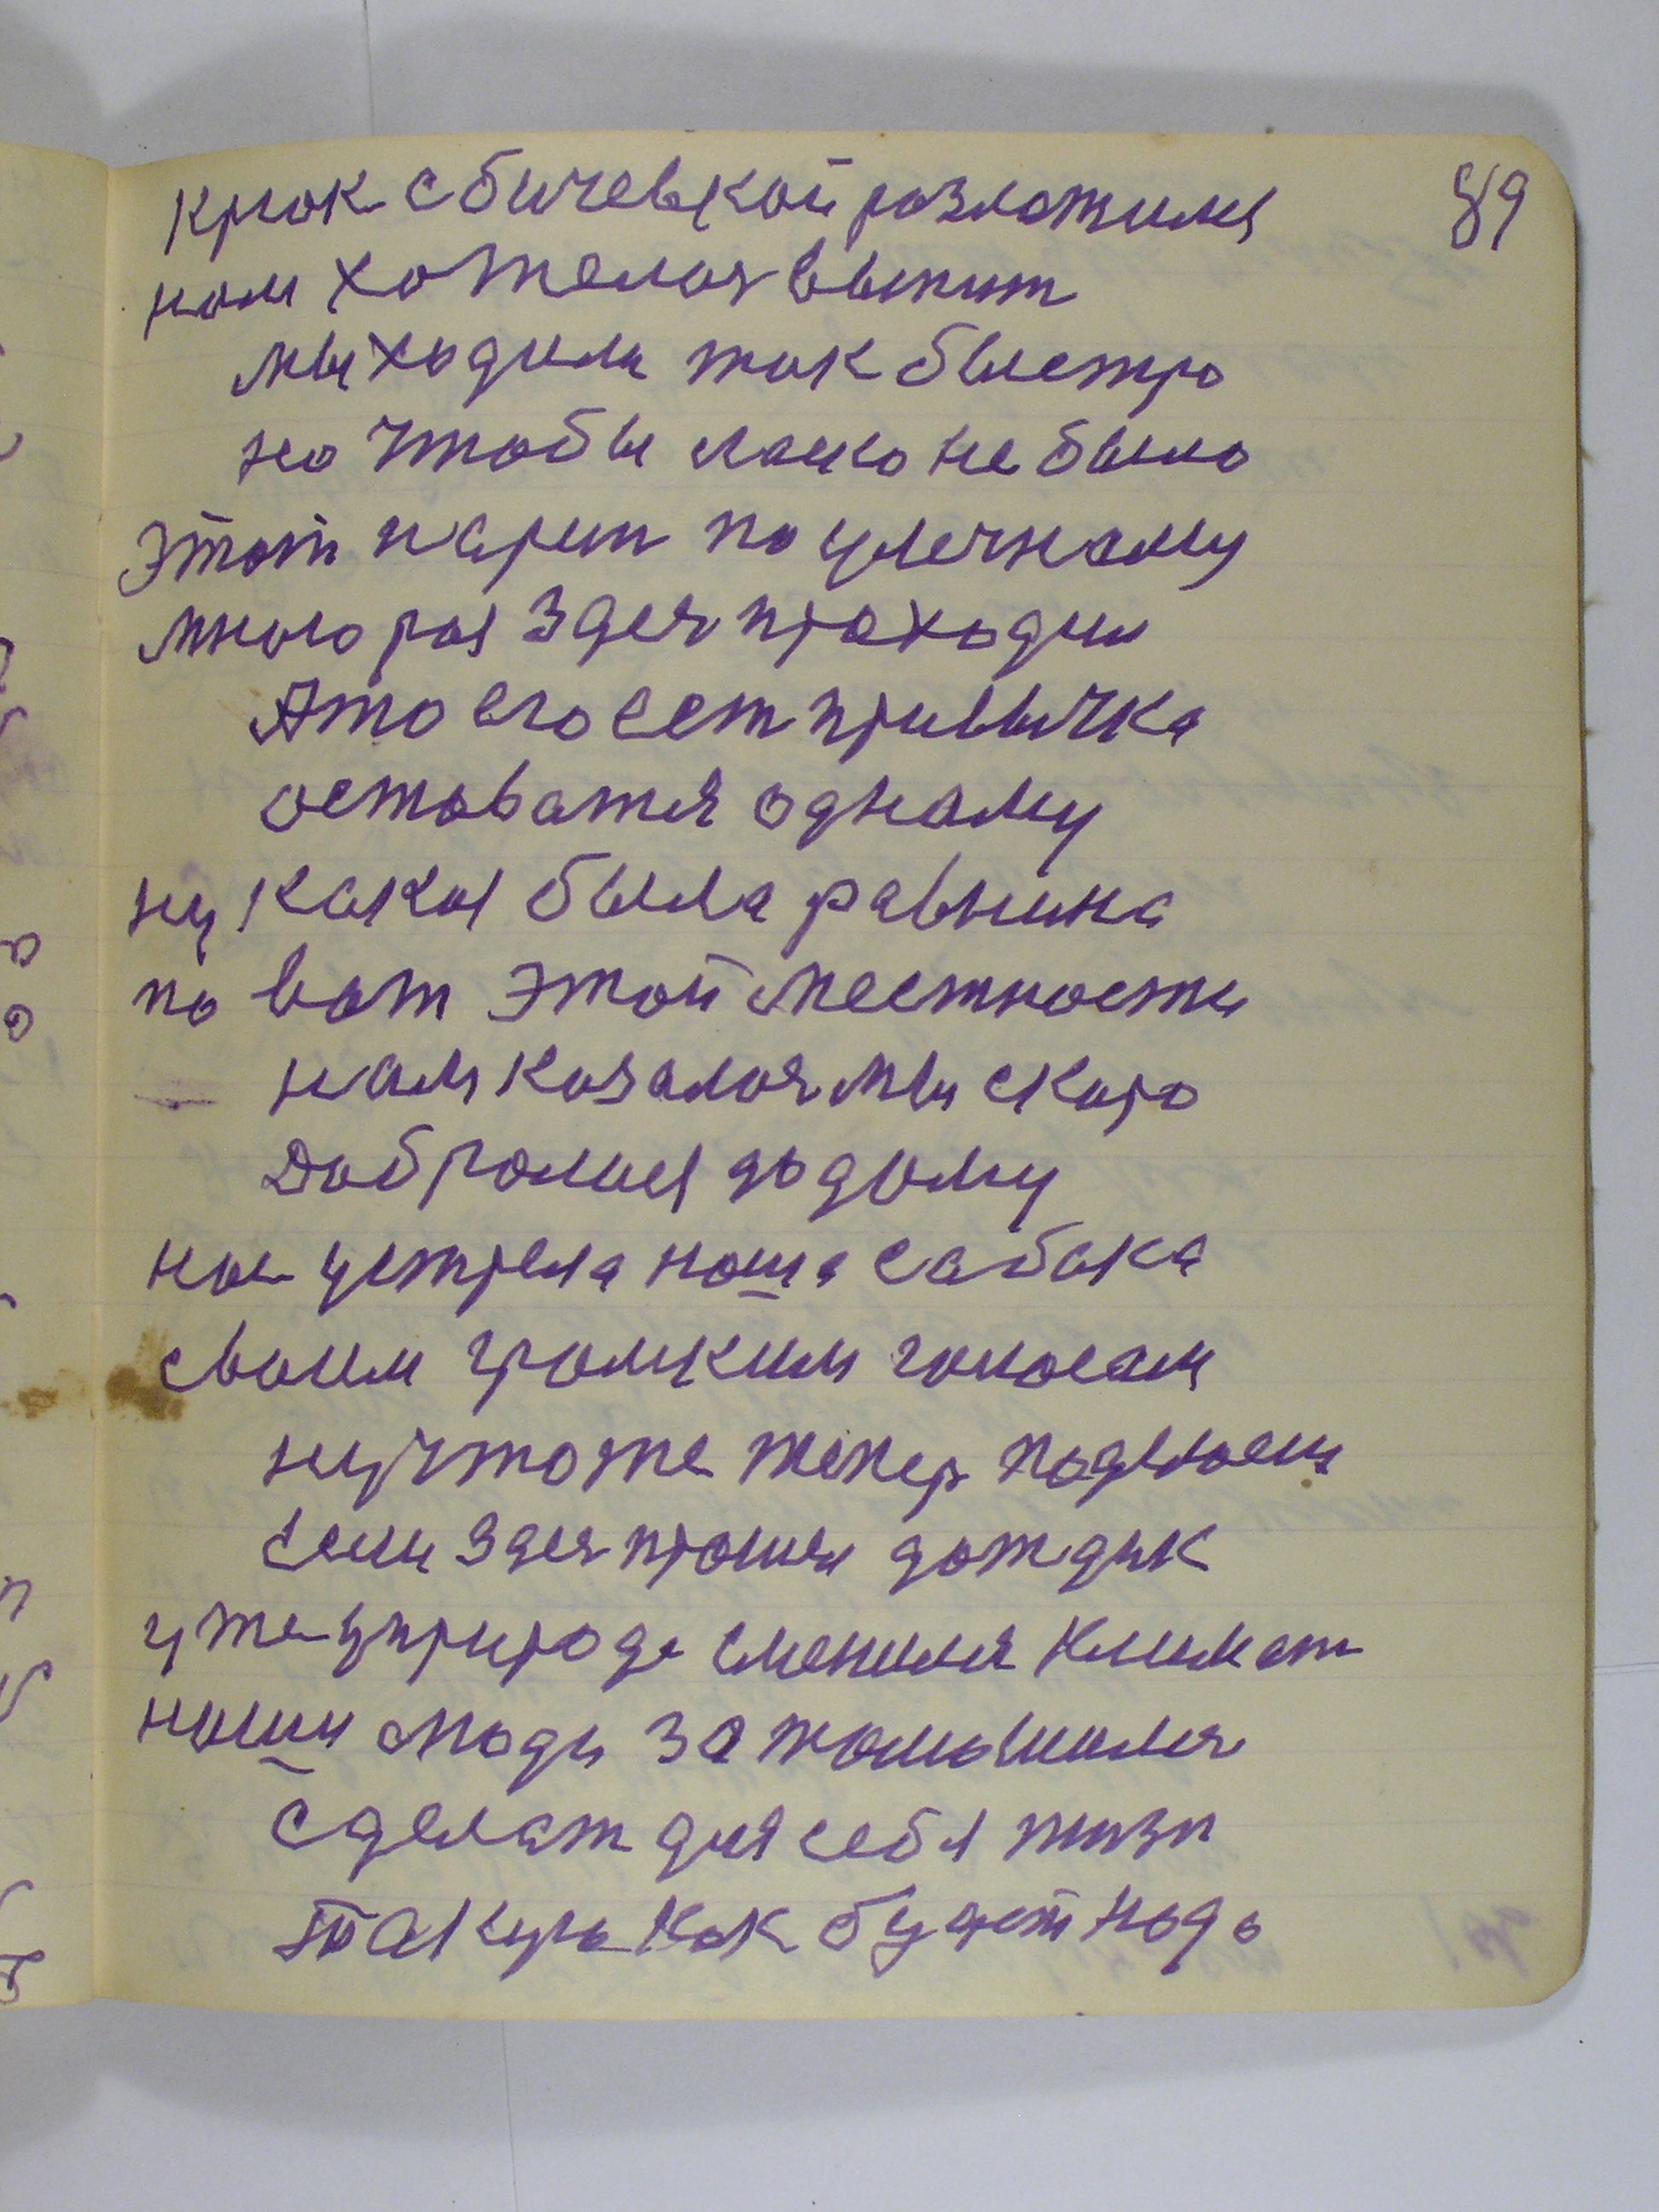 89
крюк с бичевкой разложили
нам хотелося выпит
мы ходили так быстро
но чтобы лашо не было
Этот парин по уличному
много раз здеся проходил
Ато его сет привычка
оставатся одному
ну какая была равнина
по вот этой местности
нам казалося мы скоро
Добрались до дому
нас устрела наша сабака
своим громким голосам
ну что же тепер поделаеш
Если здеся прошел дождык
уже у природе сменился климат
наши люди за живо взялися
Сделат для себя жизн
Такую как будет надо